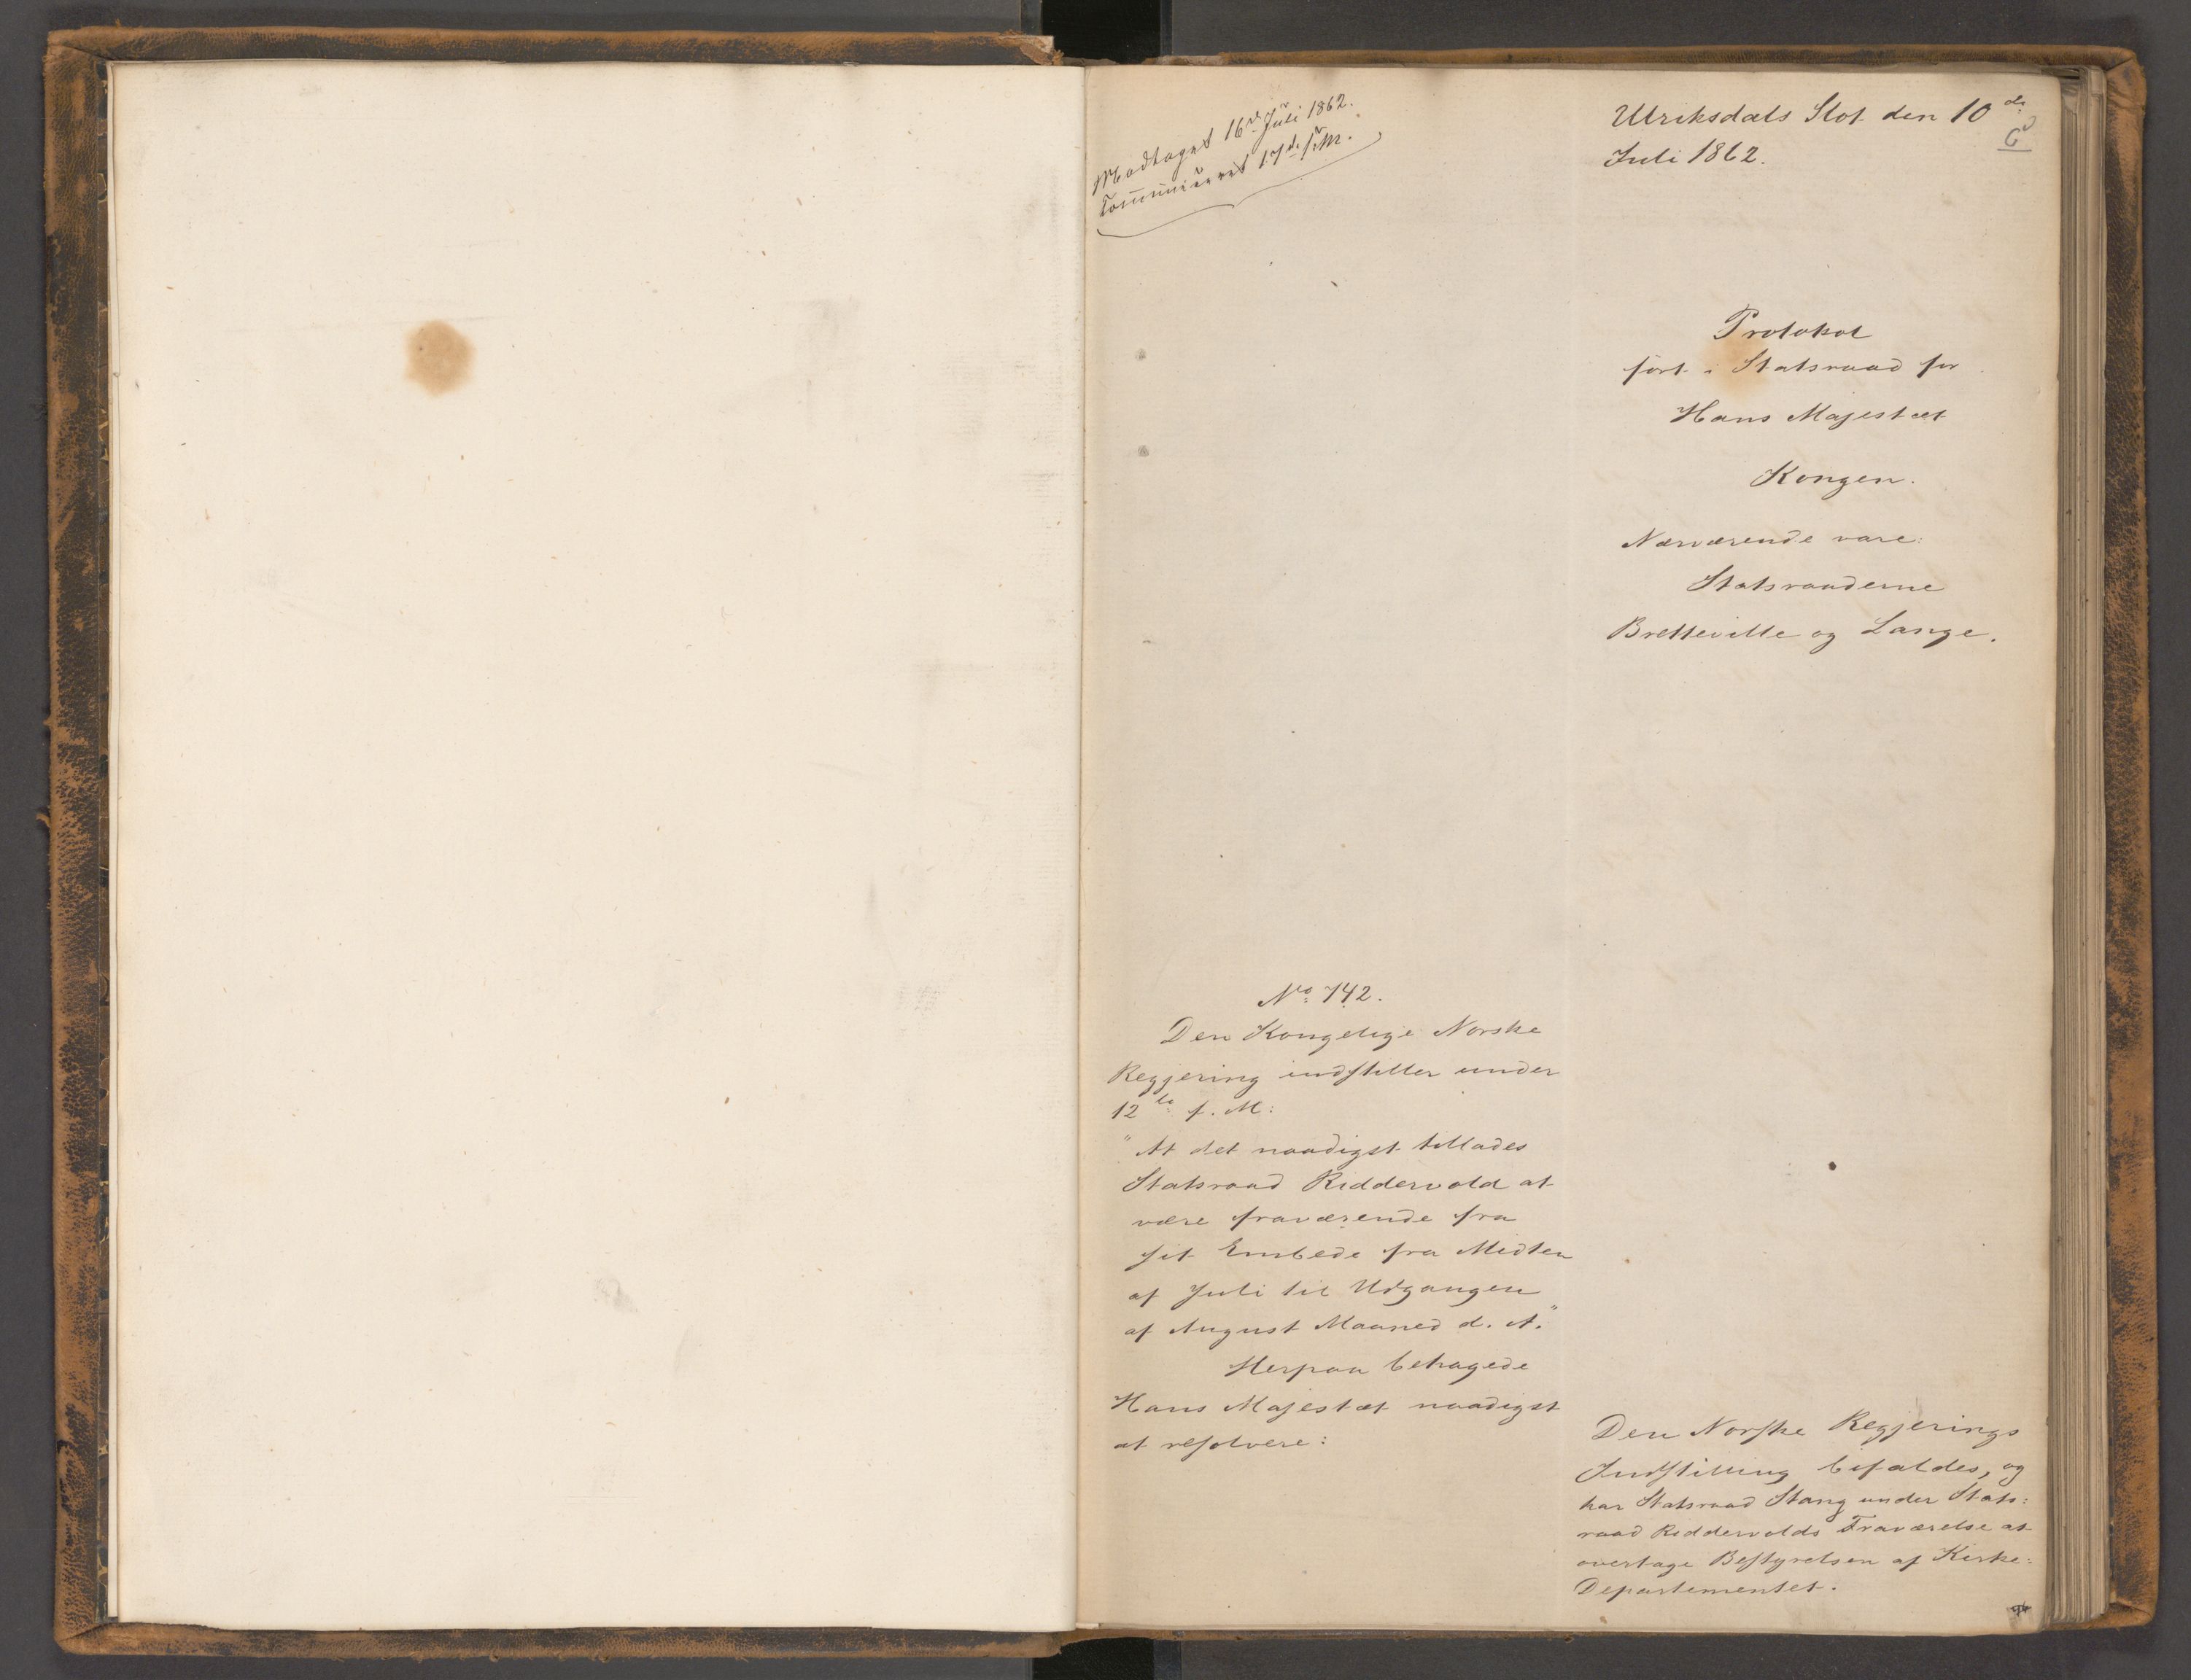 Modtaget 16de Juli 1862.
Communiceret 17de s. M.
Ulriksdals Slot den 10de
Juli 1862.
Protokol
ført i Statsraad for
Hans Majestæt
Kongen.
Nærværende vare:
Statsraaderne
Bretteville og Lange.
No. 742.
Den Kongelige Norske
Regjering indstiller under
12te f. M:
"At det naadigst tillades
Statsraad Riddervold at
være fraværende fra
sit Embede fra Midten
af Juli til Udgangen
af August Maaned d. A."
Herpaa behagede
Hans Majestæt naadigst
at resolvere:
Den Norske Regjerings
Indstilling bifaldes, og
har Statsraad Stang under Stats:
raad Riddervolds Fraværelse at
overtage Bestyrelsen af Kirke:
Departementet.